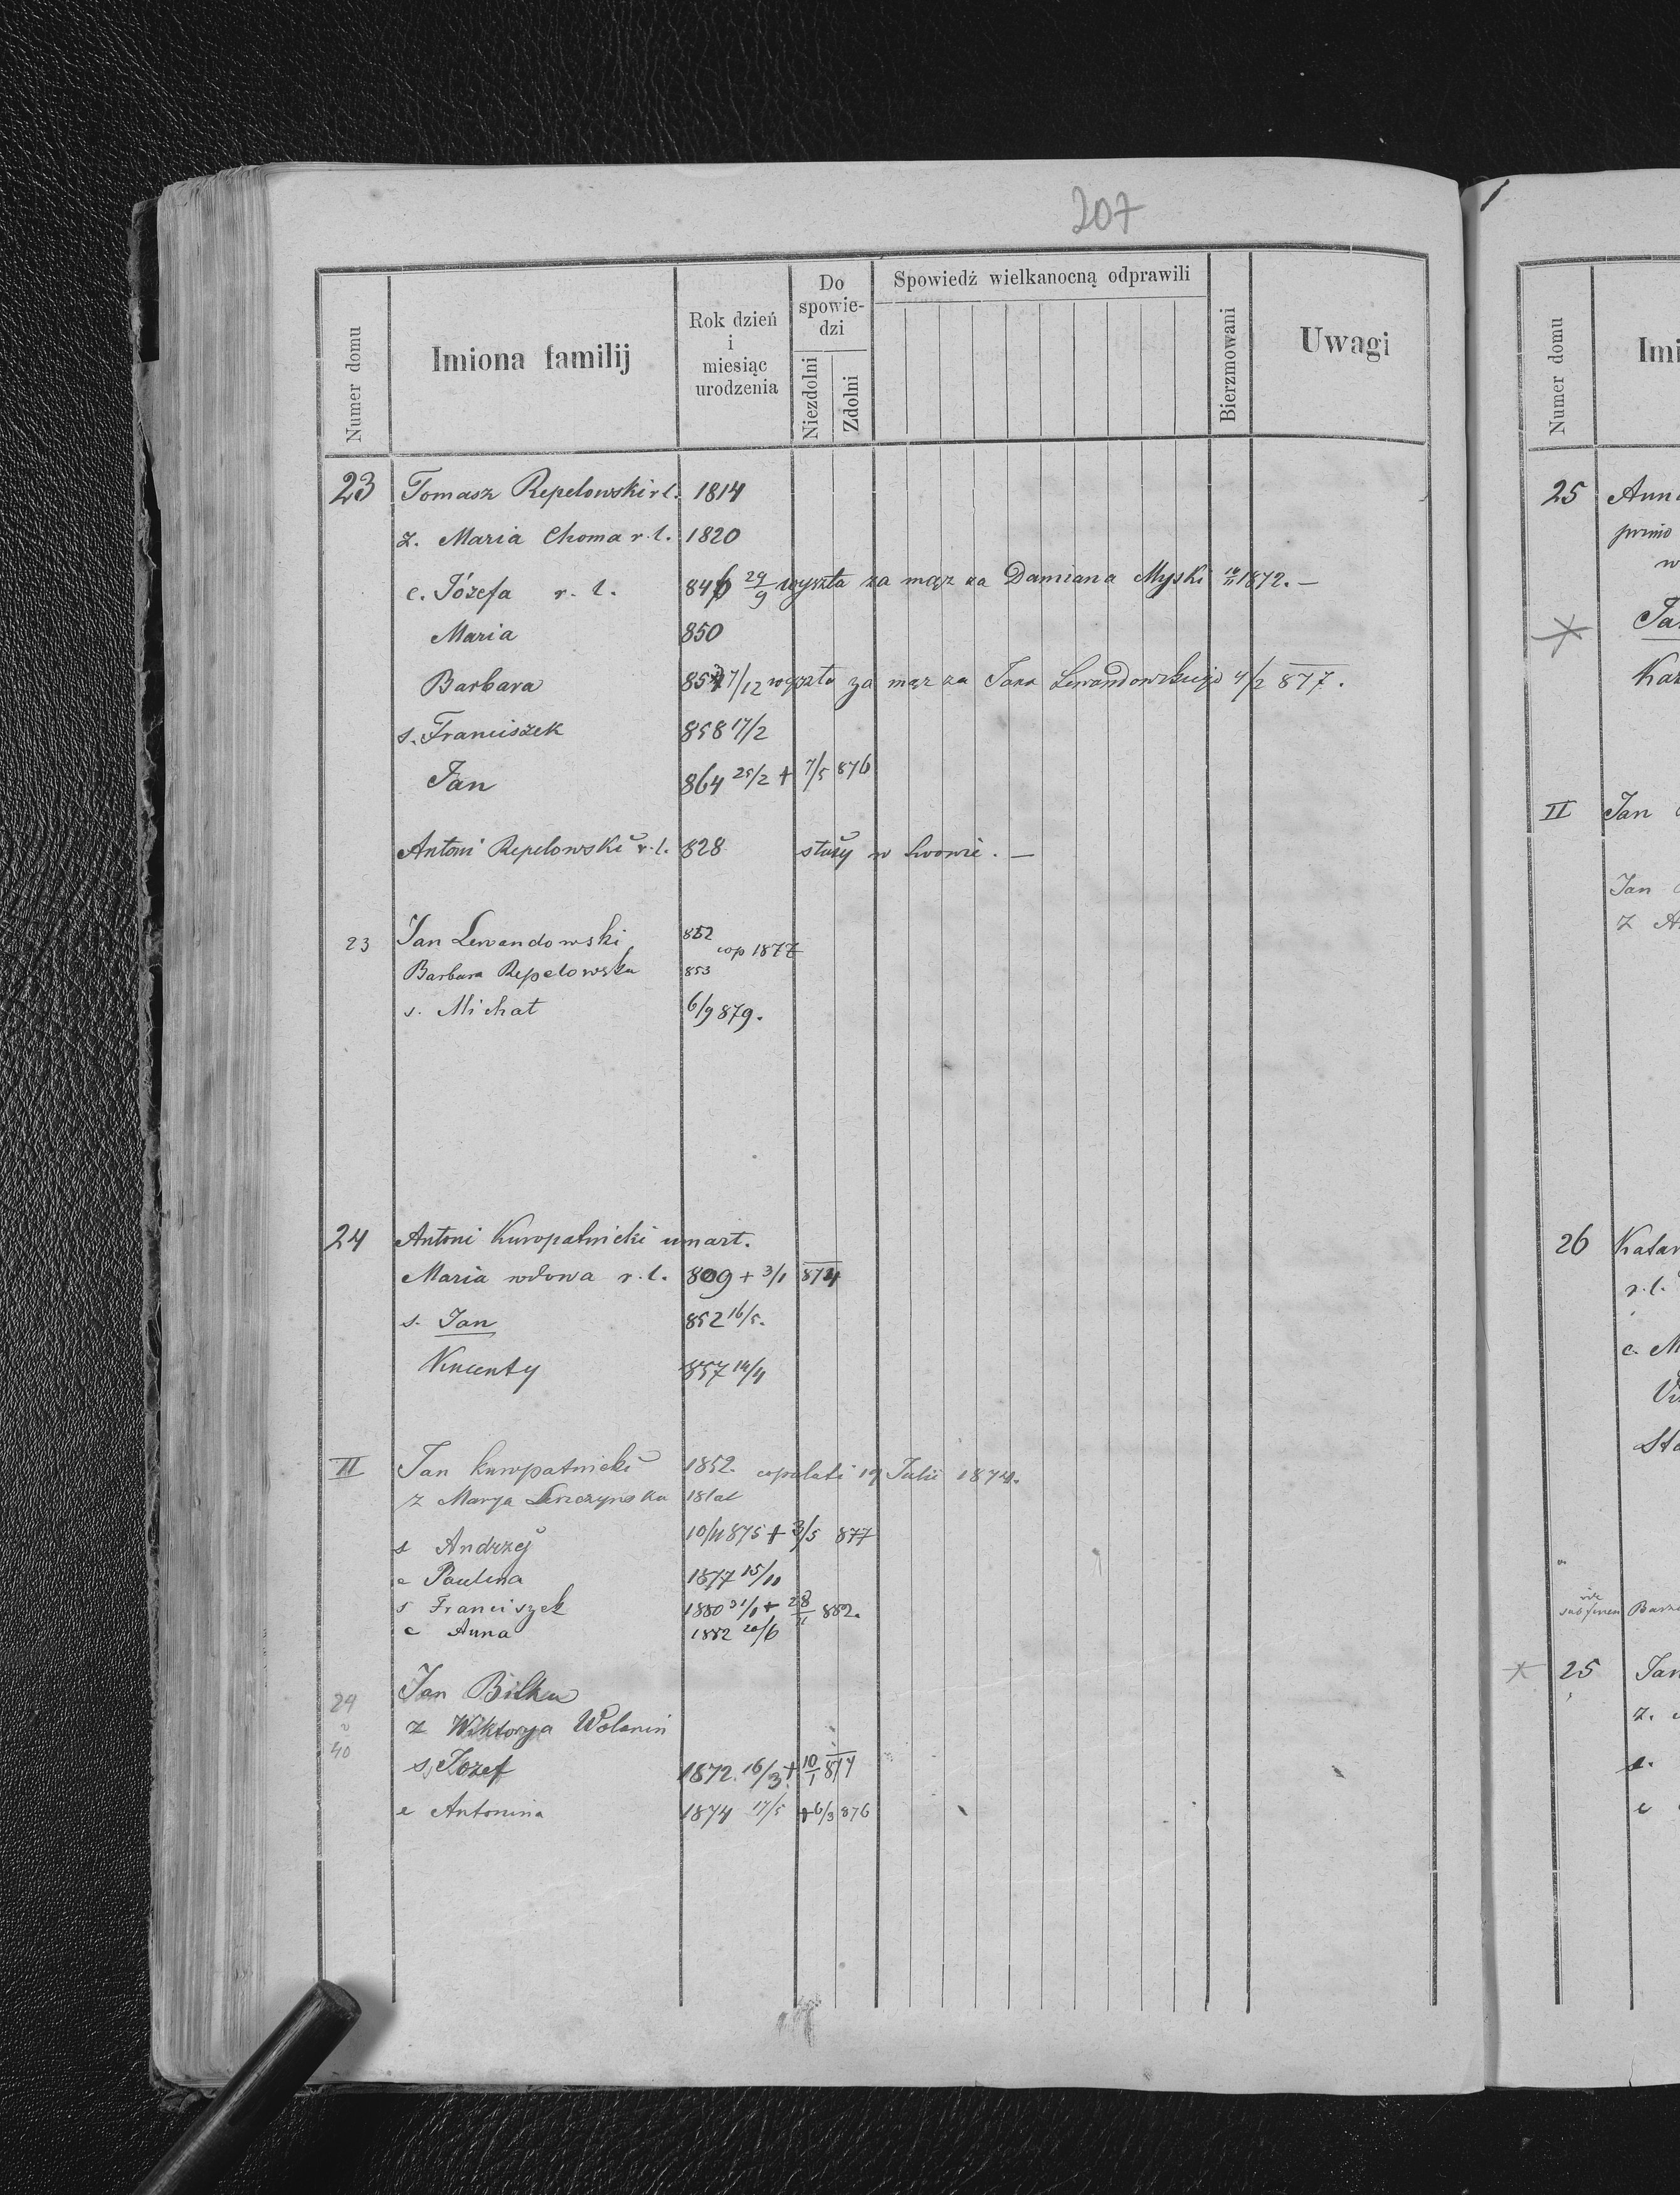 207
Numer domu
Imiona familij
Rok dzień i miesiąc urodzenia
Do spowiedzi
Niezdolni
Zdolni
Spowiedź wielkanocną odprawili
Bierzmowani
Uwagi
23 Tomasz Repelowski r.l. 1814
z. Maria Choma r.l. 1820
c. Józefa r.l. 846 29/9 wyszła za mąż za Damiana Myski 1872. —
Maria 850
Barbara 853 7/12 wyszła za mąż za Jana Lewandowskiego 4/2 877.
s. Franciszek 858 17/2
Jan 864 25/2 + 7/5 876
Antoni Repelowski r.l. 828 służy w Lwowie. —
23 Jan Lewandowski 852
cop 1877
Barbara Repelowska 853
s. Michał 6/9 879.
24 Antoni Kuropatnicki umart.
Maria wdowa r.l. 809 + 3/1 874
s. Jan 852 16/5.
Vincenty 857 14/4
II Jan Kuropatnicki 1852. copulati 19 Julii 1874.
z Marya 18 lat
s Andrzej 10/11 875 + 3/5 877
c Paulina 1877 15/10
s Franciszek 1880 31/1 + 28/11 882.
c Anna 1882 20/6
24 a 40 Jan Bilken
z Wiktorya Wolanin
s. Józef 1872. 16/3. + 10/1 874
c Antonina 1874 17/5 + 6/3 876
Numer domu
Imi
25 Anna
primo
w
Ja
Kaz
II Jan
Jan
z A
26 Katar
r.l.
c. M
Vi
Sta
vide
sub finem
25 Jan
z.
s.
c